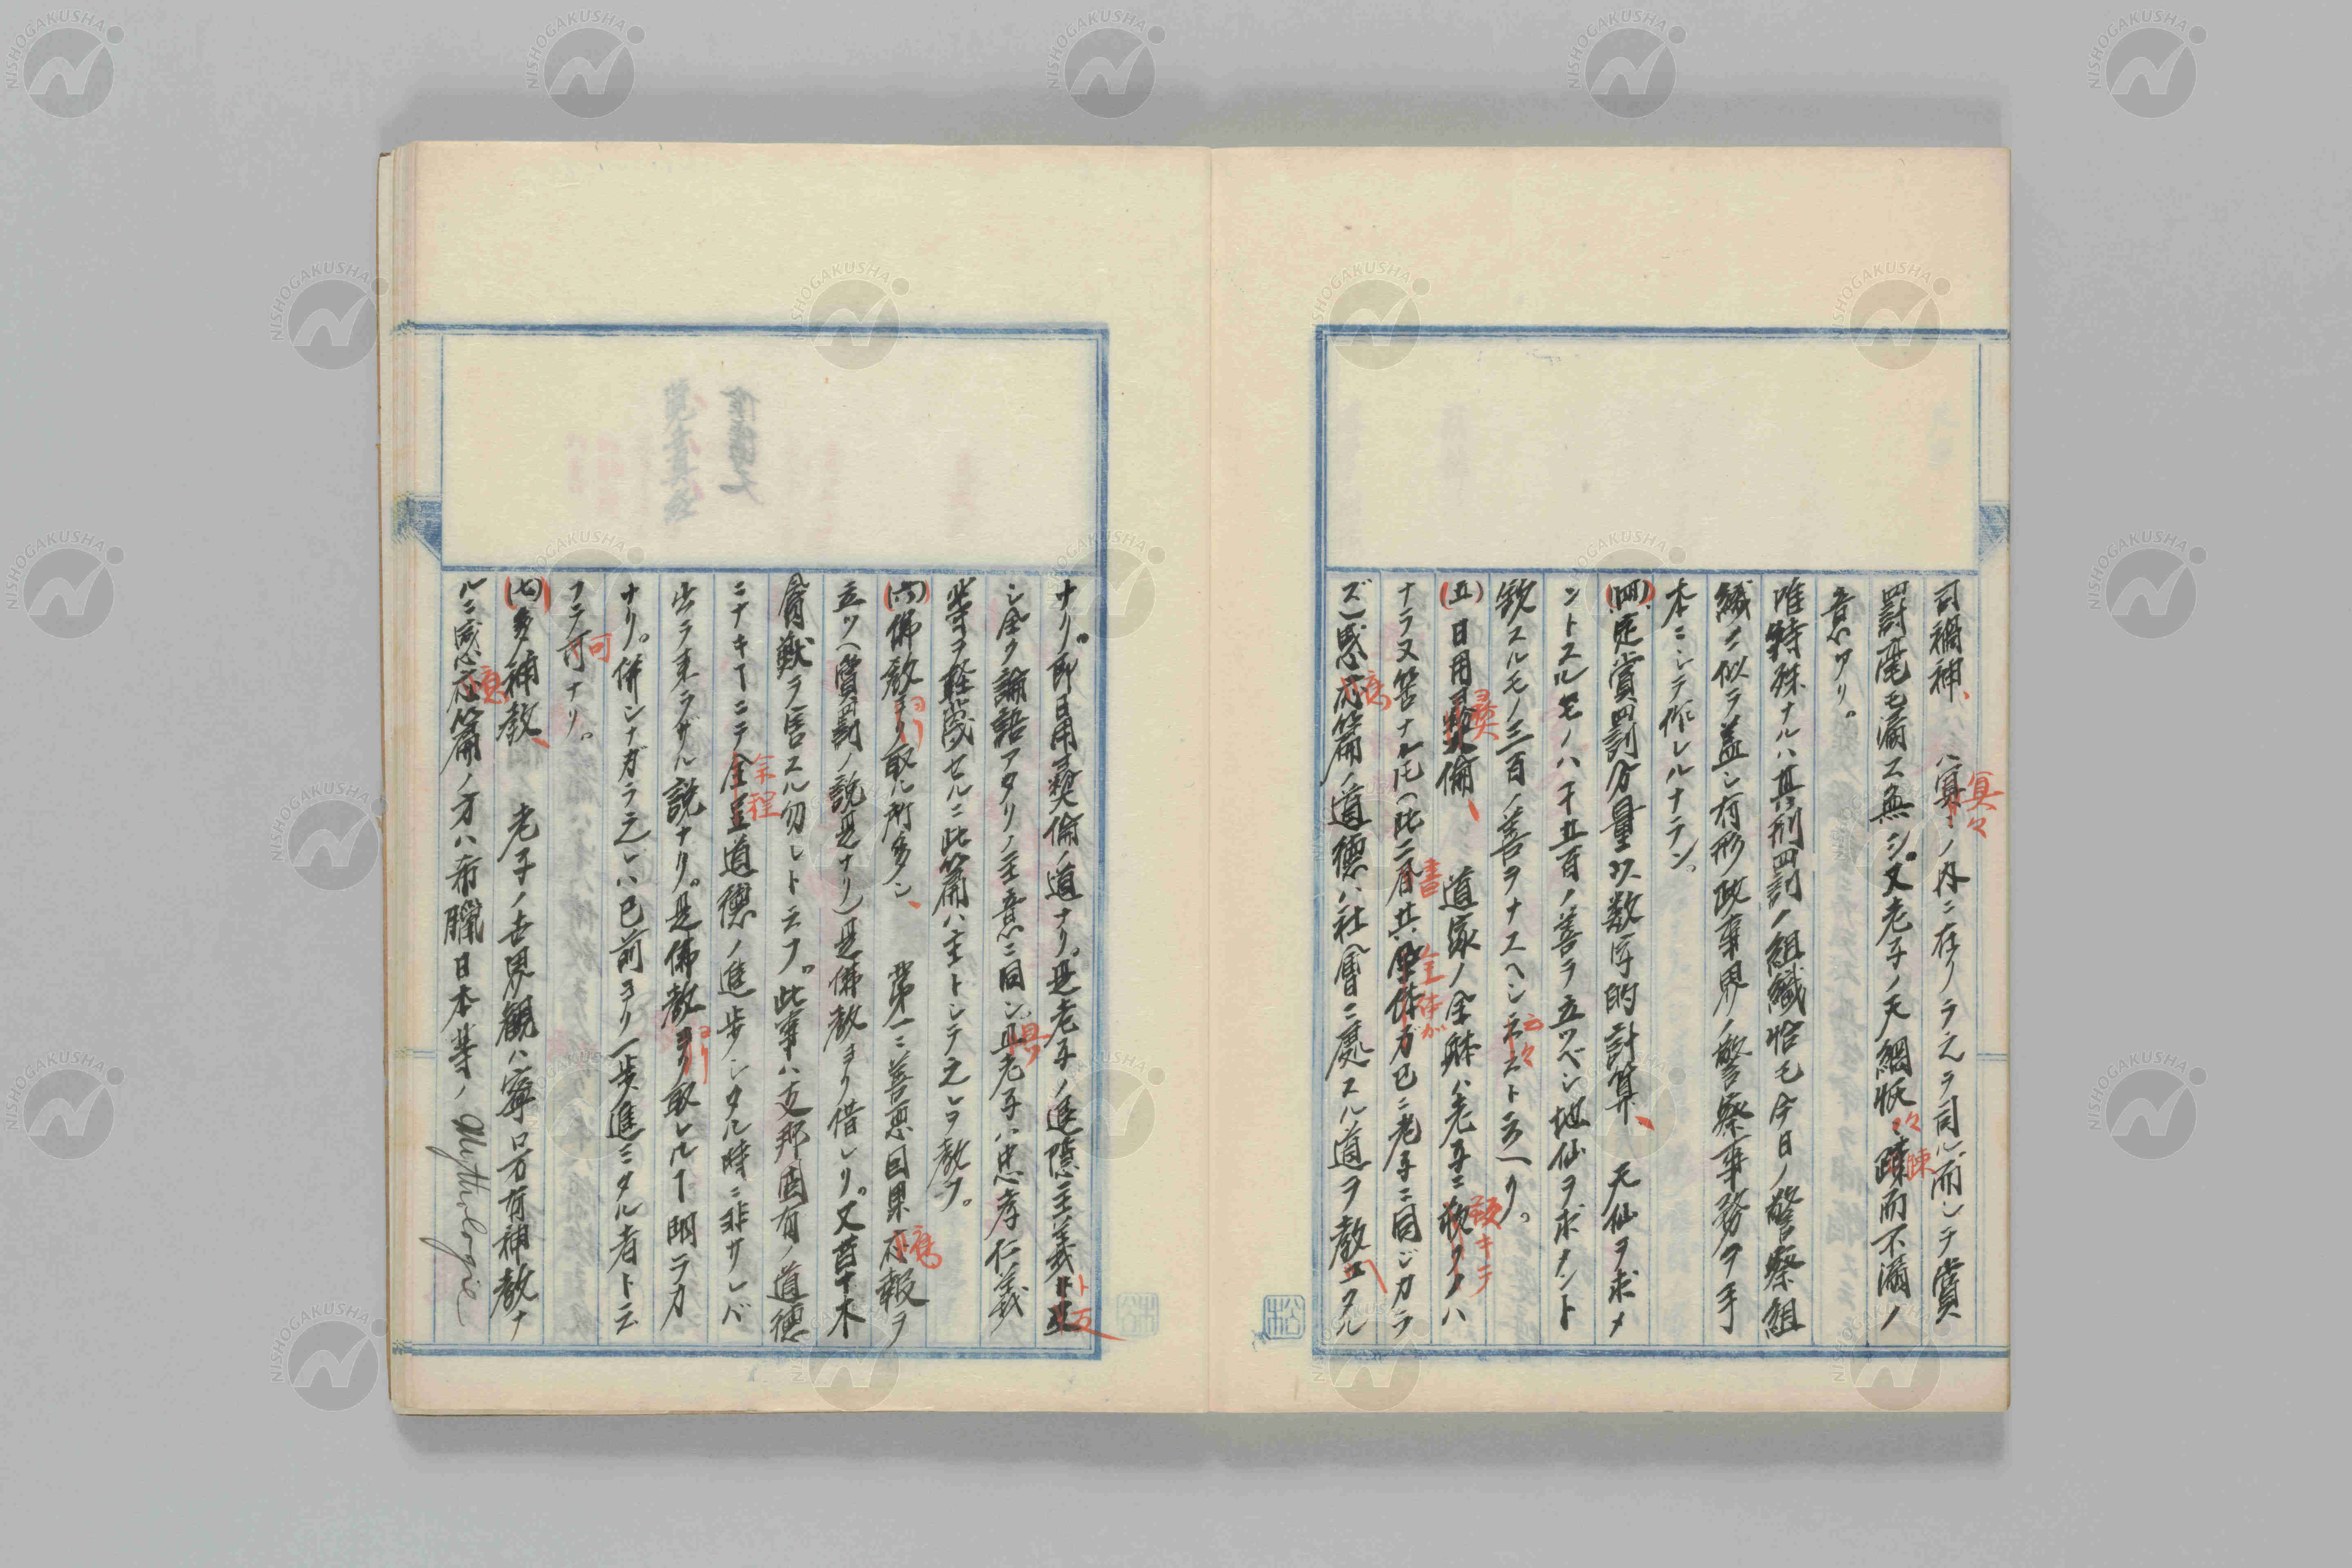 司禍神、ハ冥々ノ内ニ在リテ之ヲ司ル而シテ賞
罰毫モ漏ス無シ。又老子ノ天網恢々疎而不漏ノ
意アリ。
唯特殊ナルハ其刑罰ノ組織恰モ今日ノ警察組
織ニ似テ蓋シ有形政事界ノ警察事務ヲ手
本ニシテ作レルナラン。
(四)定賞罰分量以数字的計算、天仙ヲ求メ
ントスルモノハ千五百ノ善ヲ立ツベシ地仙ヲ求メント
欲スルモノ三百ノ善ヲナスヘシ云々ト云ヘリ。
(五)日用彝倫、道家ノ全躰ハ老子ニ
ナラヌ筈ナルモ(此二書共全体ガ已ニ老子ニ同ジカラ
ズ)感應篇ノ道德ハ社會ニ處スル道ヲ教ヘタル
ナリ。即日用彝倫ノ道ナリ。是老子ノ退隠主義ト
シ全ク論語アタリノ主意ニ同シ且ツ老子ハ忠孝仁義
等ヲ軽蔑セルニ此篇ハ主トシテ之レヲ教フ。
(六)佛教ヨリ取ル所多シ、第一ニ善悪因果應報ヲ
立ツ(賞罰ノ説是ナリ)是佛教ヨリ借レリ。又草木
禽獣ヲ害スル勿レト云フ。此事ハ支那固有ノ道德
ニナキヿニテ余程道德ノ進歩シタル時ニ非サレバ
出テ来ラザル説ナリ。是佛教ヨリ取レルヿ明ラカ
ナリ。併シナガラ之レハ已前ヨリ一歩進ミタル者ト云
フテ可ナリ。
(七)多神教、老子ノ世界観ハ寧ロ万有神教ナ
ルニ感應篇ノ方ハ希臘日本等ノ Mythologie
松